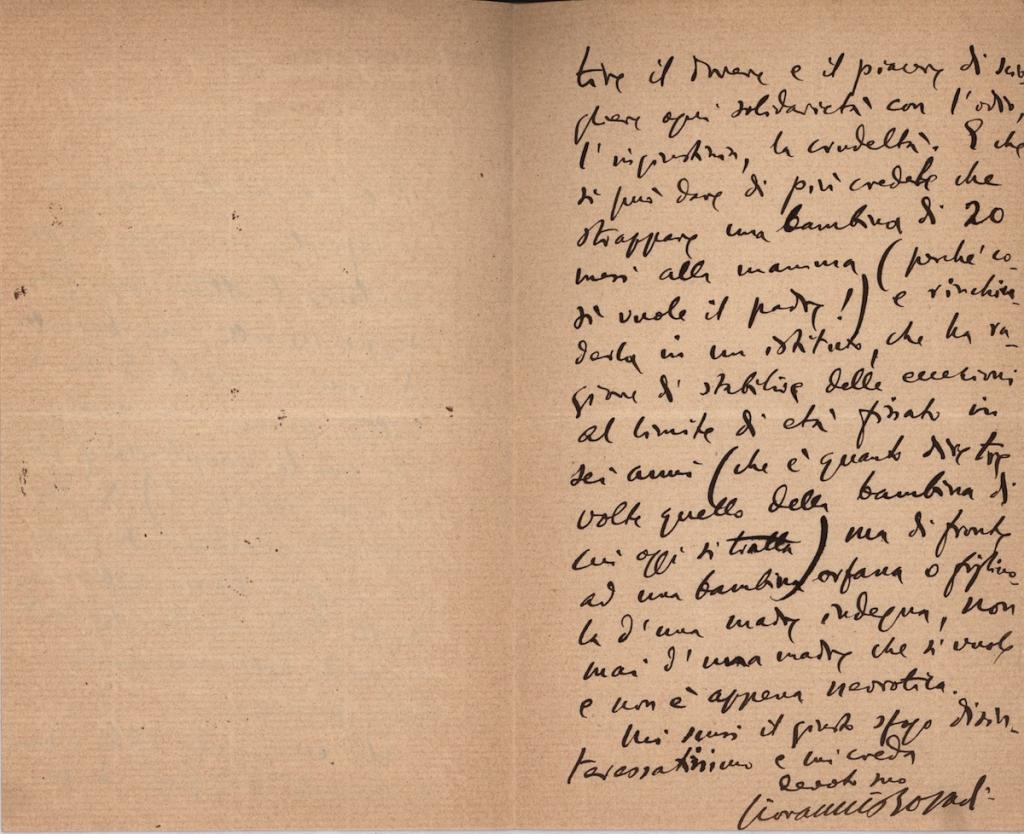 tire il dovere e il piacere di scio-
gliere ogni solidarietà con l'odio,
l'ingiustizia, la crudeltà. E che
si può dare di più crudele che
strappare una bambina di 20
mesi alla mamma (perché co-
sì vuole il padre!) e rinchiu-
derla in un istituto, che ha ra-
gione di stabilire delle eccezioni
al limite di età fissato in
sei anni (che è quanto dire tre
volte quello della bambina di
cui oggi si tratta) ma di fronte
ad una bambina orfana o figliuo-
la d'una madre indegna, non
mai d'una madre che si vuole
e non è appena nevrotica.
Mi scusi il giusto sfogo disin-
teressatissimo e mi creda
devoto suo
Giovanni Rosadi